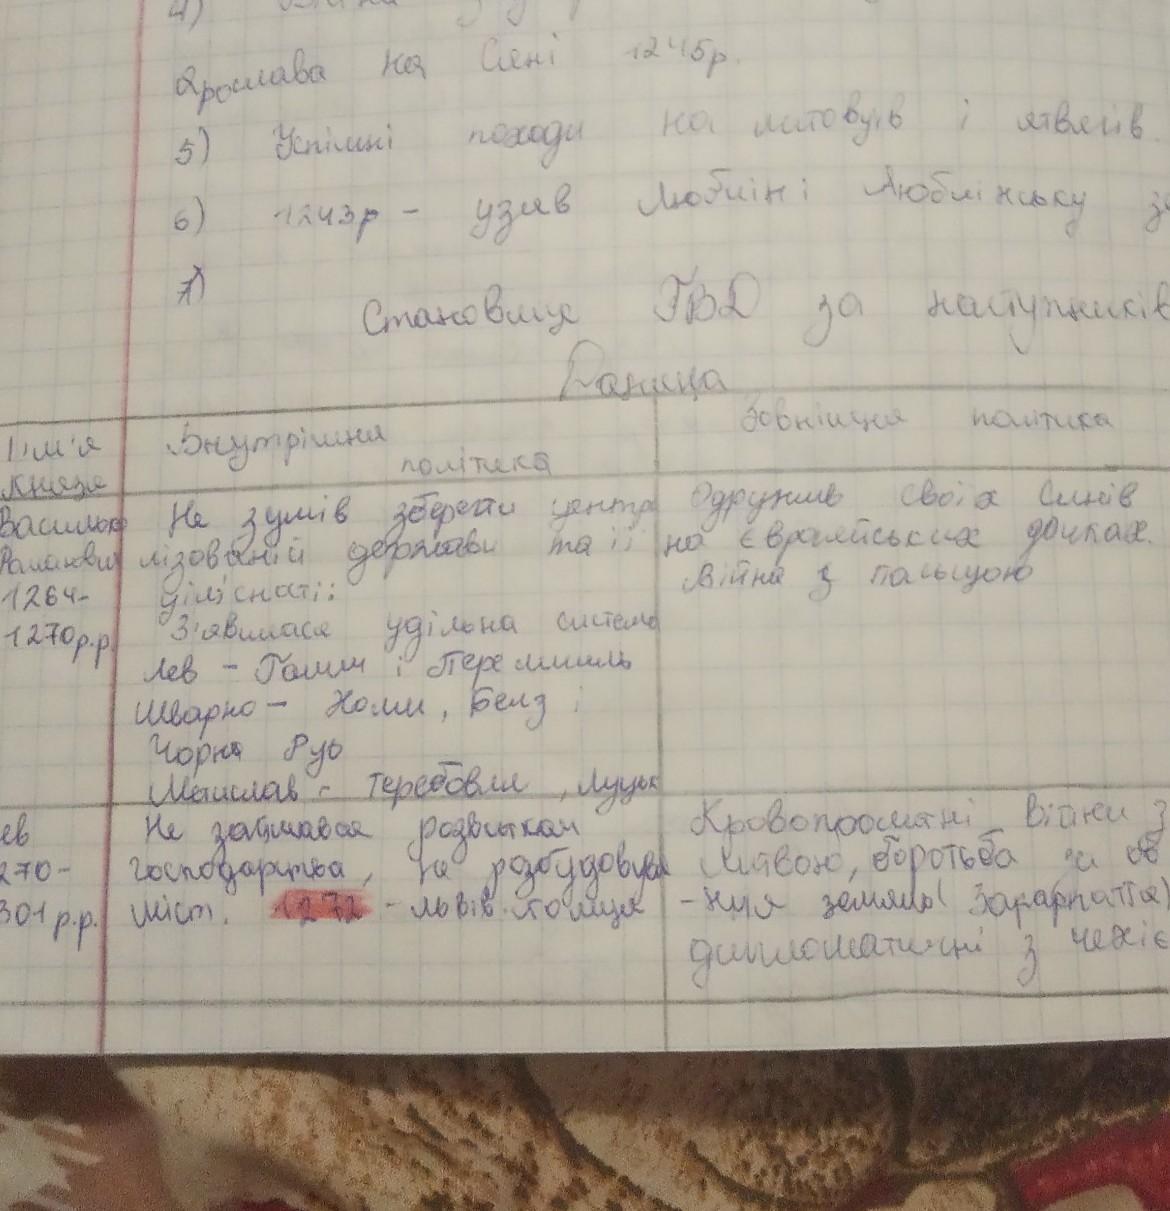 4) Війна з
Ярослава на Сяні 1245р.
5) Успішні походи на литовців і ятвягів.
6) 1243р - узяв Люблін і Люблінську
7)
Становище ГВД за наступників
Данила
Ім'я
князя
Внутрішня
політика
Зовнішня політика
Василько
Романович
1264-
1270р.р.
Не зумів зберегти центра
лізованій держави та її
цілісності:
З'явилася удільна система
Лев - Галич і Перемишль
Шварно - Холм, Белз і
Чорна Русь
Мстислав - Теребовля, Луцьк
Одружив своїх синів
на європейських дочках.
Війна з Польщою
ев
270-
301р.р.
Не займався розвитком
господарства, не розбудовував
міст. 1272 - Львів столиця
Кровопролитні війни з
Литвою, боротьба за об
-ння земель (Закарпаття)
дипломатичні з Чехіє